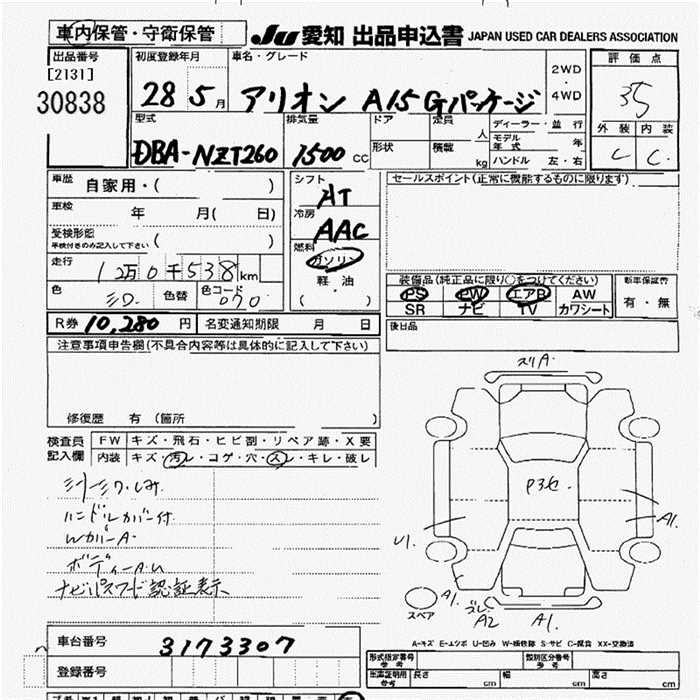 車内保管・守衛保管
JU 愛知 出品申込書 JAPAN USED CAR DEALERS ASSOCIATION
出品番号
[2131]
30838
初度登録年月
28 5月
車名・グレード
アリオン A15 Gパッケージ
2WD
・
4WD
評価点
3.5
外装 内装
C C
型式
DBA-NZT260
排気量
1500 CC
ドア
形状
定員 人
積載 kg
ディーラー・並行
モデル年式 年
ハンドル 左・右
車歴
自家用・( )
車検
年 月( 日)
受検形態
車検付きのみ記入して下さい ( )
走行
12万0千538km
色
シロ
色替
色コード
070
シフト
AT
冷房
AAC
燃料
ガソリン
軽・油
( )
セールスポイント(正常に機能するものに限ります)
装備品(純正品に限り○をつけてください)
PS PW エアB AW
SR ナビ TV カワシート
新車保証書
有・無
後日品
R券 10,280 円
名変通知期限 月 日
注意事項申告欄(不具合内容等は具体的に記入して下さい)
修復歴 有 (箇所 )
検査員
記入欄
FW キズ・飛石・ヒビ割・リペア跡・X要
内装 キズ・汚レ・コゲ・穴・スレ・キレ・破レ
シート シワ・しみ
ハンドルカバー付
WカバーA
ボディーA.U
ナビパスワード認証表示
スリA・
P3セ
U1.
A1.
スペア
A1.
ズレ
A2
A1.
A-キズ E-エクボ U-凹み W-補修跡 S-サビ C-腐食 XX-交換済
車台番号
3173307
登録番号
形式指定番号
参考
類別区分番号
参考
車庫証明用
参考
長さ cm
幅 cm
高さ cm